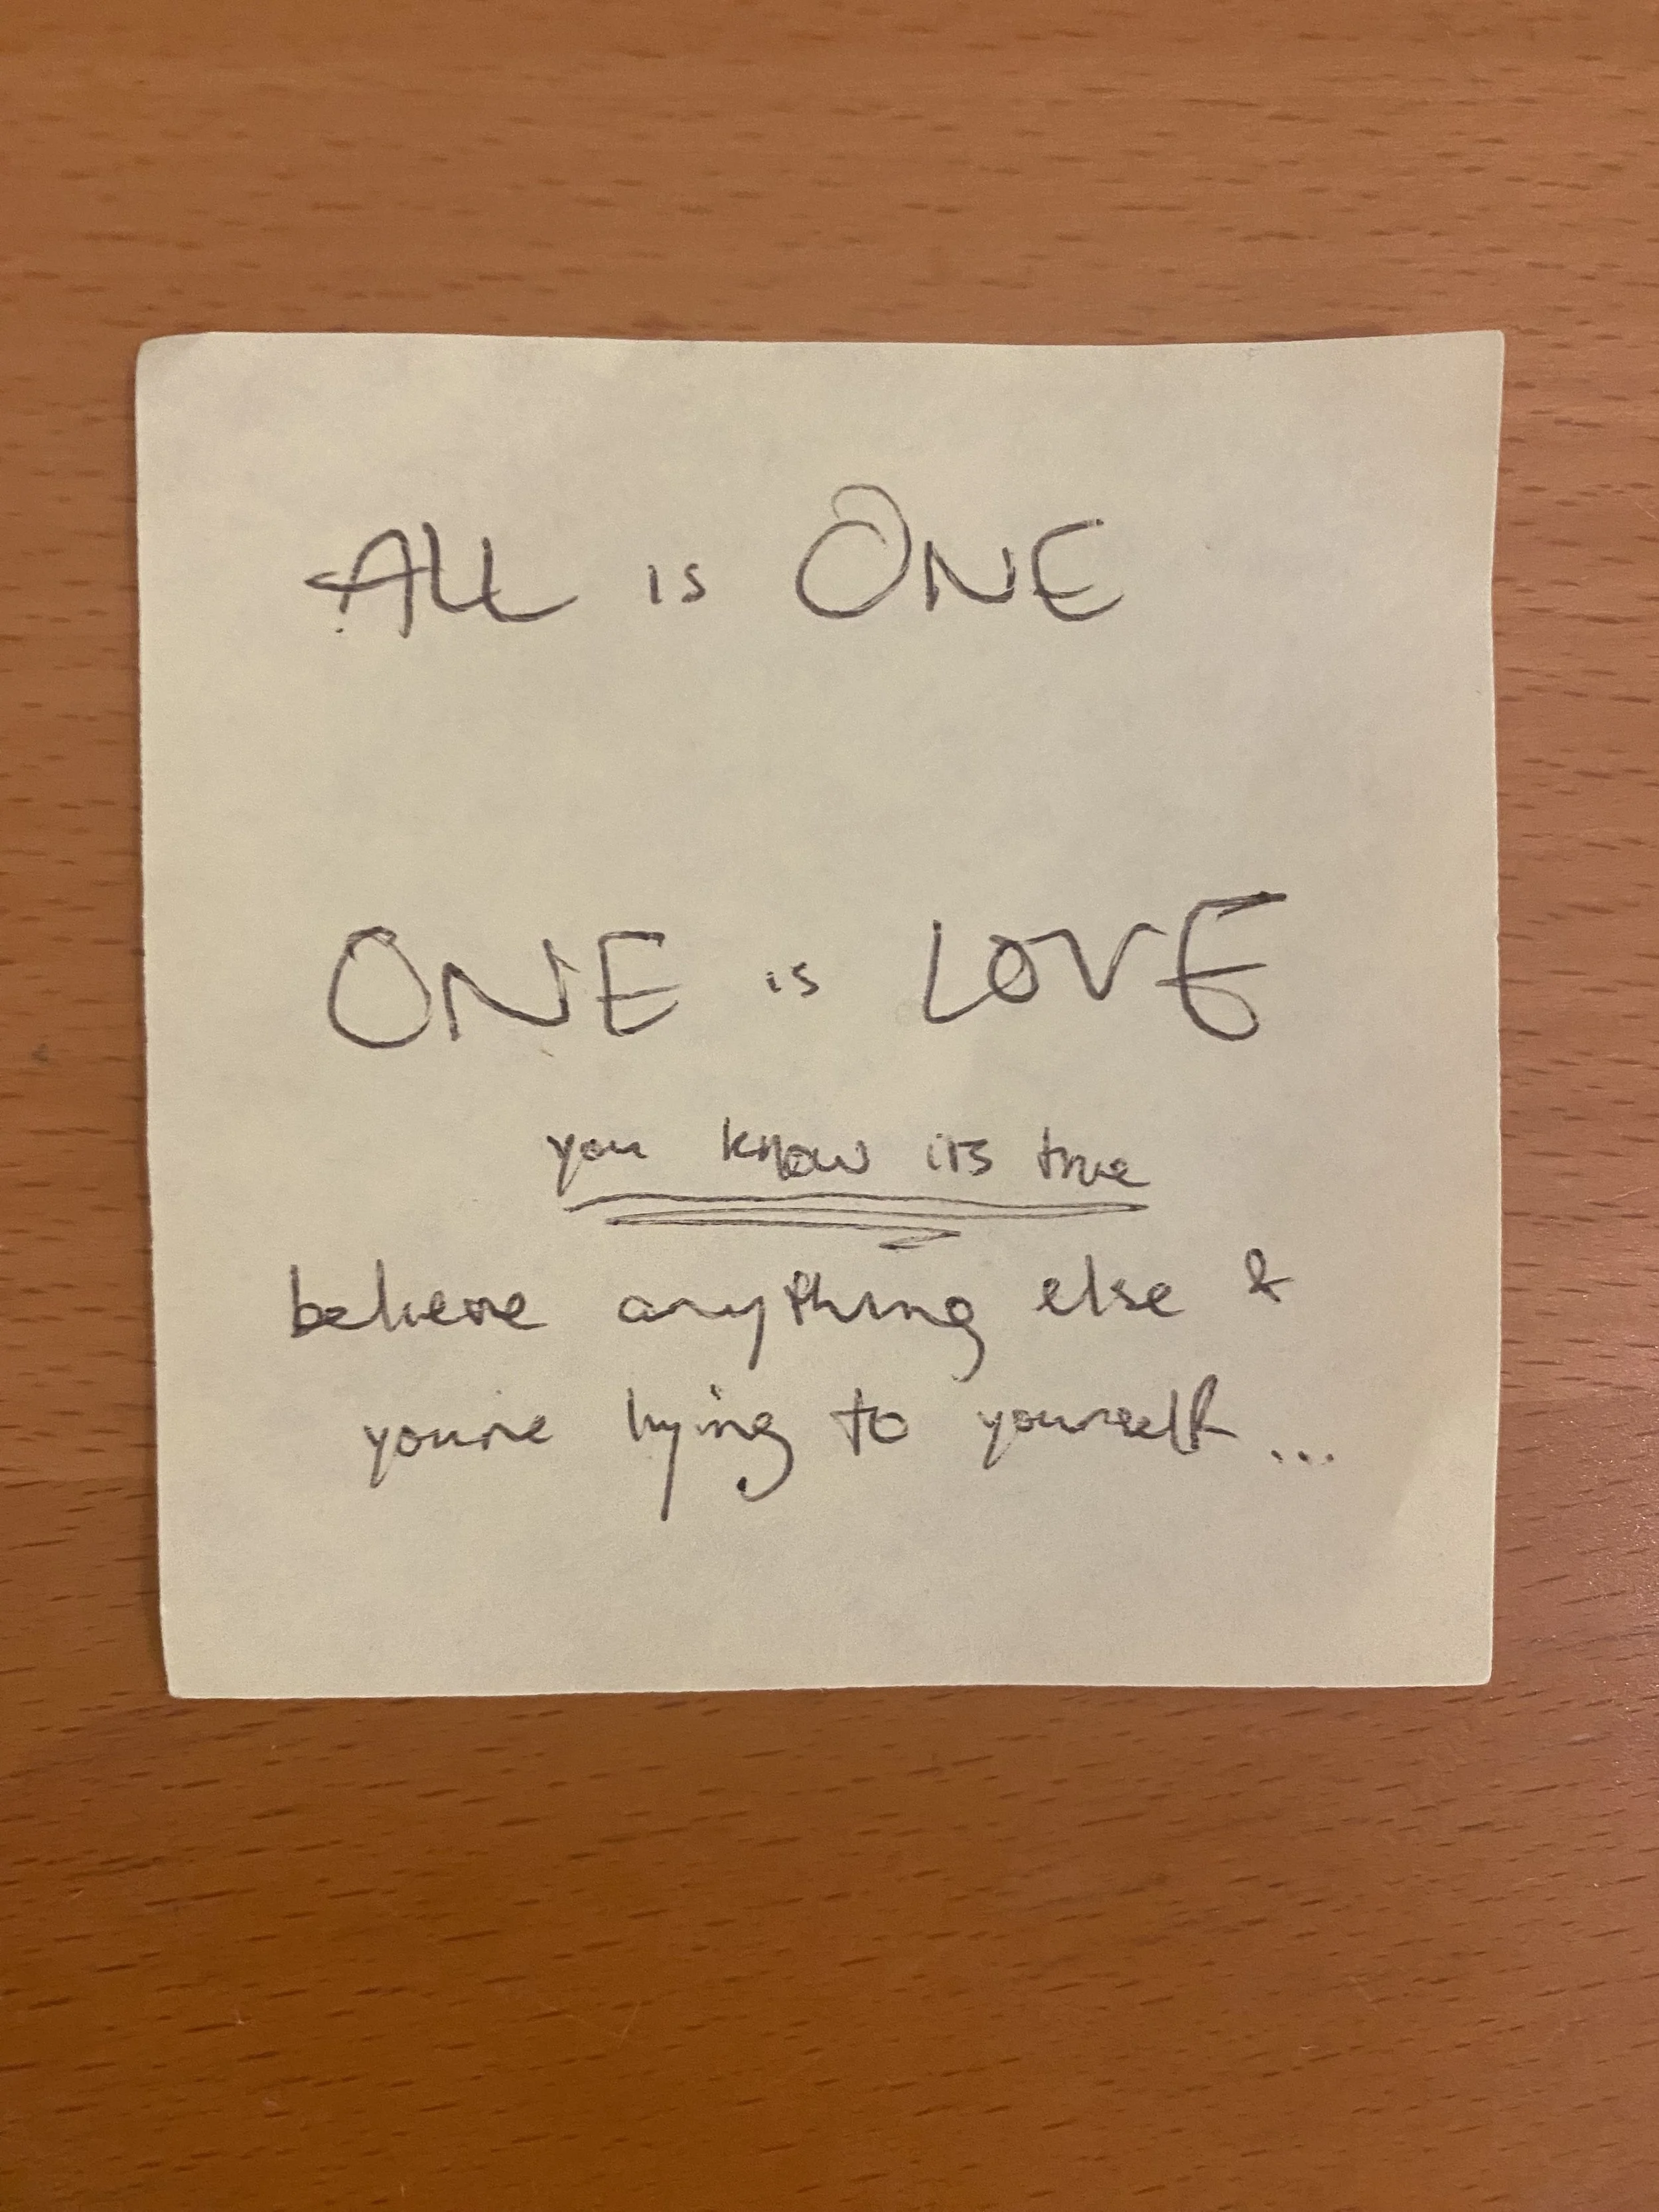 ALL is ONE
ONE is LOVE
you know its true
believe anything else &
youre lying to yourself...